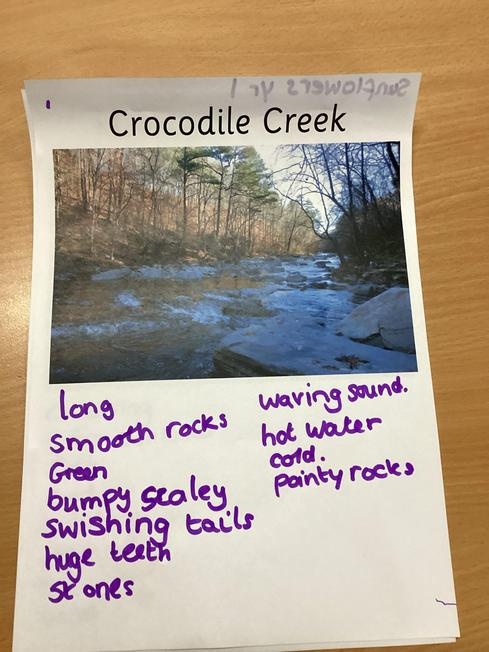 Sunflowers yr 1
Crocodile Creek
long
smooth rocks
Green
bumpy scaley
swishing tails
huge teeth
stones
waving sound.
hot water
cold.
pointy rocks